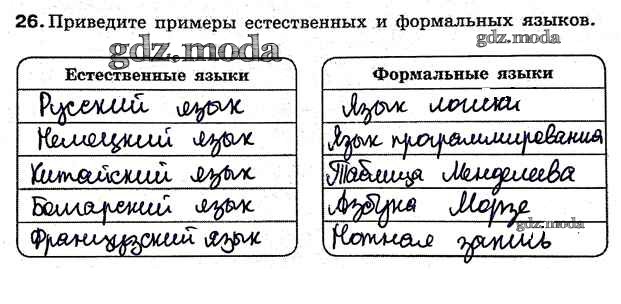 26. Приведите примеры естественных и формальных языков.
gdz.moda
gdz.moda
Естественные языки
Русский язык
Немецкий язык
Китайский язык
Болгарский язык
Французский язык
Формальные языки
Язык логики
Язык программирования
Таблица Менделеева
Азбука Морзе
gdz.moda
Нотная запись